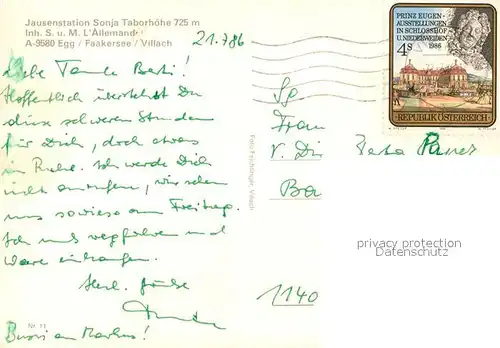 Jausenstation Sonja Taborhöhe 725 m
Inh. S. u. M. L'Allemand
A-9580 Egg / Faakersee / Villach
21.7.86
Liebe Tante Berti!
Hoffentlich überstehst Du
diese schweren Stunden
für Dich, doch etwas
in Ruhe. Ich werde Dich
nicht anrufen, wir sehen
uns sowieso am Freitag.
Ich muß wegfahren und
Ware einkaufen.
Herl. Grüße
Bussi an Markus!
Nr. 11
PRINZ EUGEN-
AUSSTELLUNGEN
IN SCHLOSSHOF
U. NIEDERWEIDEN
1986
4s
REPUBLIK ÖSTERREICH
Frau
V. Dir
Ba
1140
privacy protection
Datenschutz